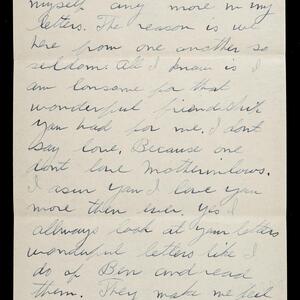 myself any more in my
letters. The reason is we
here from one another so
seldom. All I know is I
am lonsome for that
wonderful friendship
you had for me. I dont
say love. Because one
dont love Motherinlows.
I asur you I love you
more then ever. Yes I
allways look at your letters
wonderful letters like I
do of Ben and read
them. They make me feel